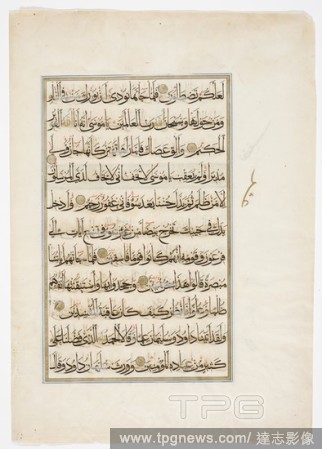 لعلكم تصطلون فلما جاءها نودي أن بورك من في النار
ومن حولها وسبحان الله رب العالمين يا موسى إنه أنا الله العزيز
الحكيم وألق عصاك فلما رآها تهتز كأنها جان ولى
مدبرا ولم يعقب يا موسى لا تخف إني لا يخاف لدي المرسلون
إلا من ظلم ثم بدل حسنا بعد سوء فإني غفور رحيم وأدخل
يدك في جيبك تخرج بيضاء من غير سوء في تسع آيات إلى
فرعون وقومه إنهم كانوا قوما فاسقين فلما جاءتهم آياتنا
مبصرة قالوا هذا سحر مبين وجحدوا بها واستيقنتها أنفسهم
ظلما وعلوا فانظر كيف كان عاقبة المفسدين
ولقد آتينا داود وسليمان علما وقالا الحمد لله الذي فضلنا على
كثير من عباده المؤمنين وورث سليمان داود وقال
TPG
www.tpgnews.com/達志影像